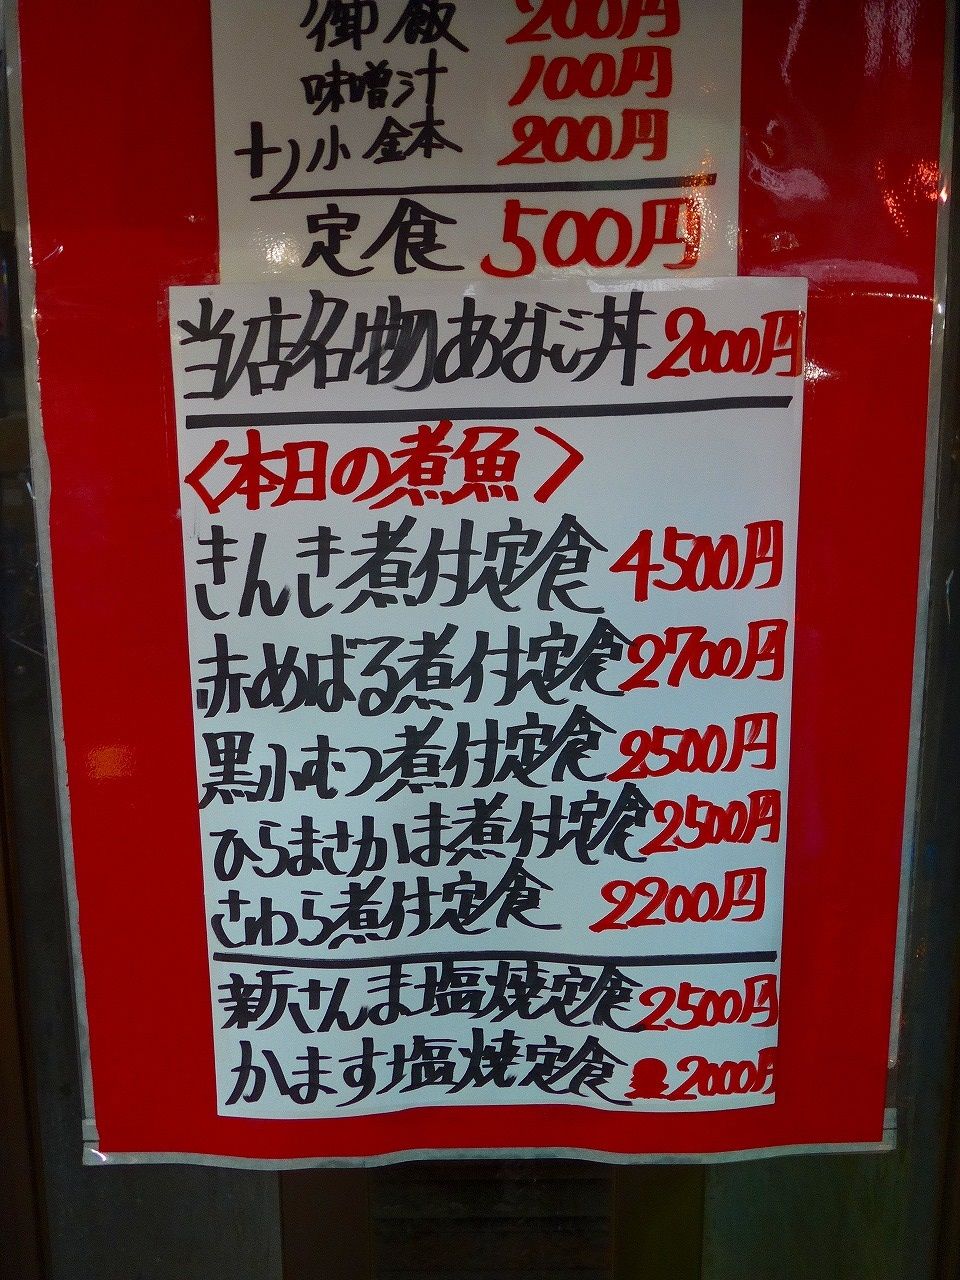 御飯 200円
味噌汁 100円
+)小鉢 200円
定食 500円
当店名物あなご丼 2000円
〈本日の煮魚〉
きんき煮付定食 4500円
赤めばる煮付定食 2700円
黒小むつ煮付定食 2500円
ひらまさかま煮付定食 2500円
さわら煮付定食 2200円
新さんま塩焼定食 2500円
かます塩焼定食 2000円